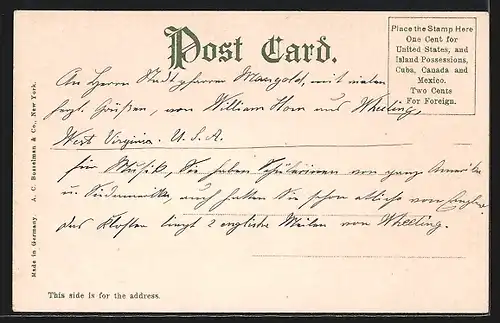 Post Card.
Place the Stamp Here
One Cent for
United States, and
Island Possessions,
Cuba, Canada and
Mexico.
Two Cents
For Foreign.
An Herrn Stadtpfarrer Mangold, mit vielen
herzl. Grüßen, von William Horn aus Wheeling,
West Virginia. U.S.A.
für Musik, Sie haben Schülerinnen von ganz
u. Südamerika, auch hatten Sie schon etliche von
das Kloster liegt 2 englische Meilen von Wheeling.
Made in Germany. A. C. Bosselman & Co., New York.
This side is for the address.